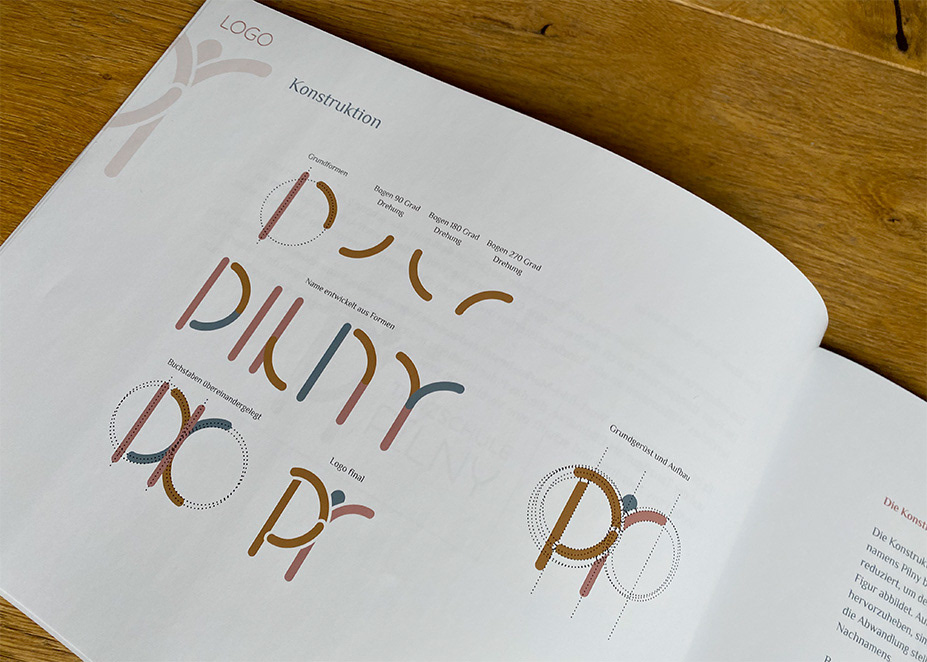 LOGO
Konstruktion
Grundformen
Bogen 90 Grad
Drehung
Bogen 180 Grad
Drehung
Bogen 270 Grad
Drehung
Name entwickelt aus Formen
PILNY
Buchstaben übereinandergelegt
Logo final
Grundgerüst und Aufbau
PILNY
Die Konst
Die Konstruk
namens Pilny b
reduziert, um de
Figur abbildet. Au
hervorzuheben, sin
die Abwandlung stell
Nachnamens